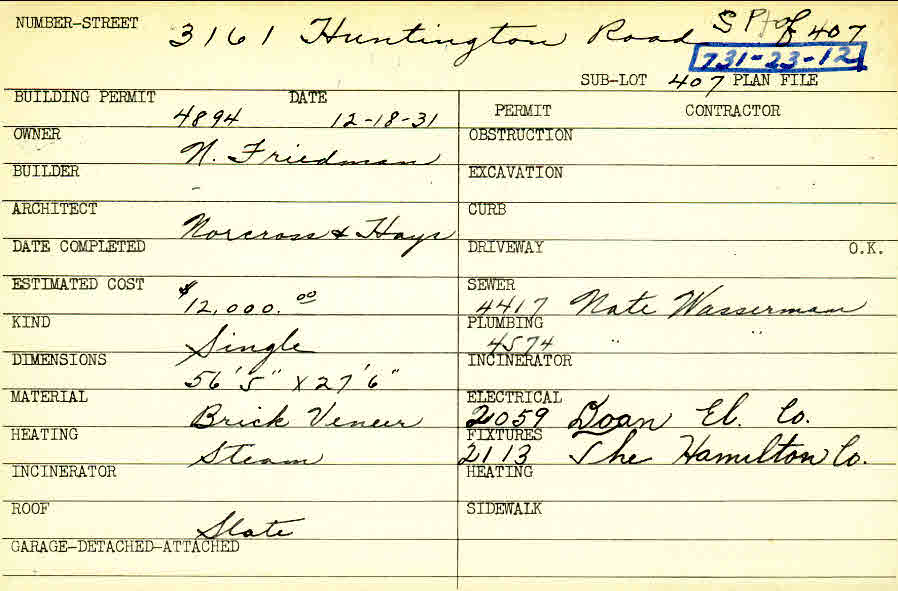 NUMBER-STREET 3161 Huntington Road S Pt of 407
731-23-12
SUB-LOT 407 PLAN FILE
BUILDING PERMIT 4894 DATE 12-18-31
PERMIT CONTRACTOR
OWNER N. Friedman
OBSTRUCTION
BUILDER -
EXCAVATION
ARCHITECT Norcross & Hays
CURB
DATE COMPLETED
DRIVEWAY O.K.
ESTIMATED COST $12,000.00
SEWER 4417 Nate Wasserman
KIND Single
PLUMBING 4574 " "
DIMENSIONS 56'5" X 27'6"
INCINERATOR
MATERIAL Brick Veneer
ELECTRICAL 2059 Doan El. Co.
HEATING Steam
FIXTURES 2113 The Hamilton Co.
INCINERATOR
HEATING
ROOF Slate
SIDEWALK
GARAGE-DETACHED-ATTACHED